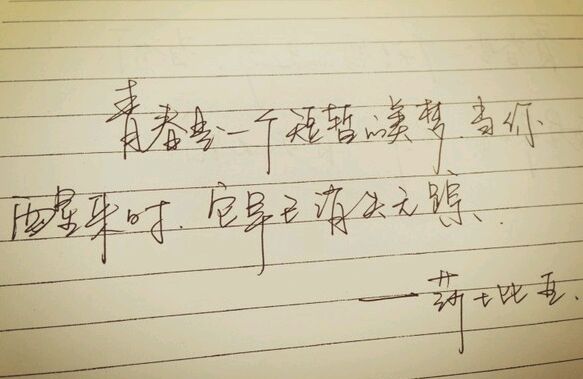 青春是一个短暂的美梦,当你
酒醒来时,它早已消失无踪、
——莎士比亚.